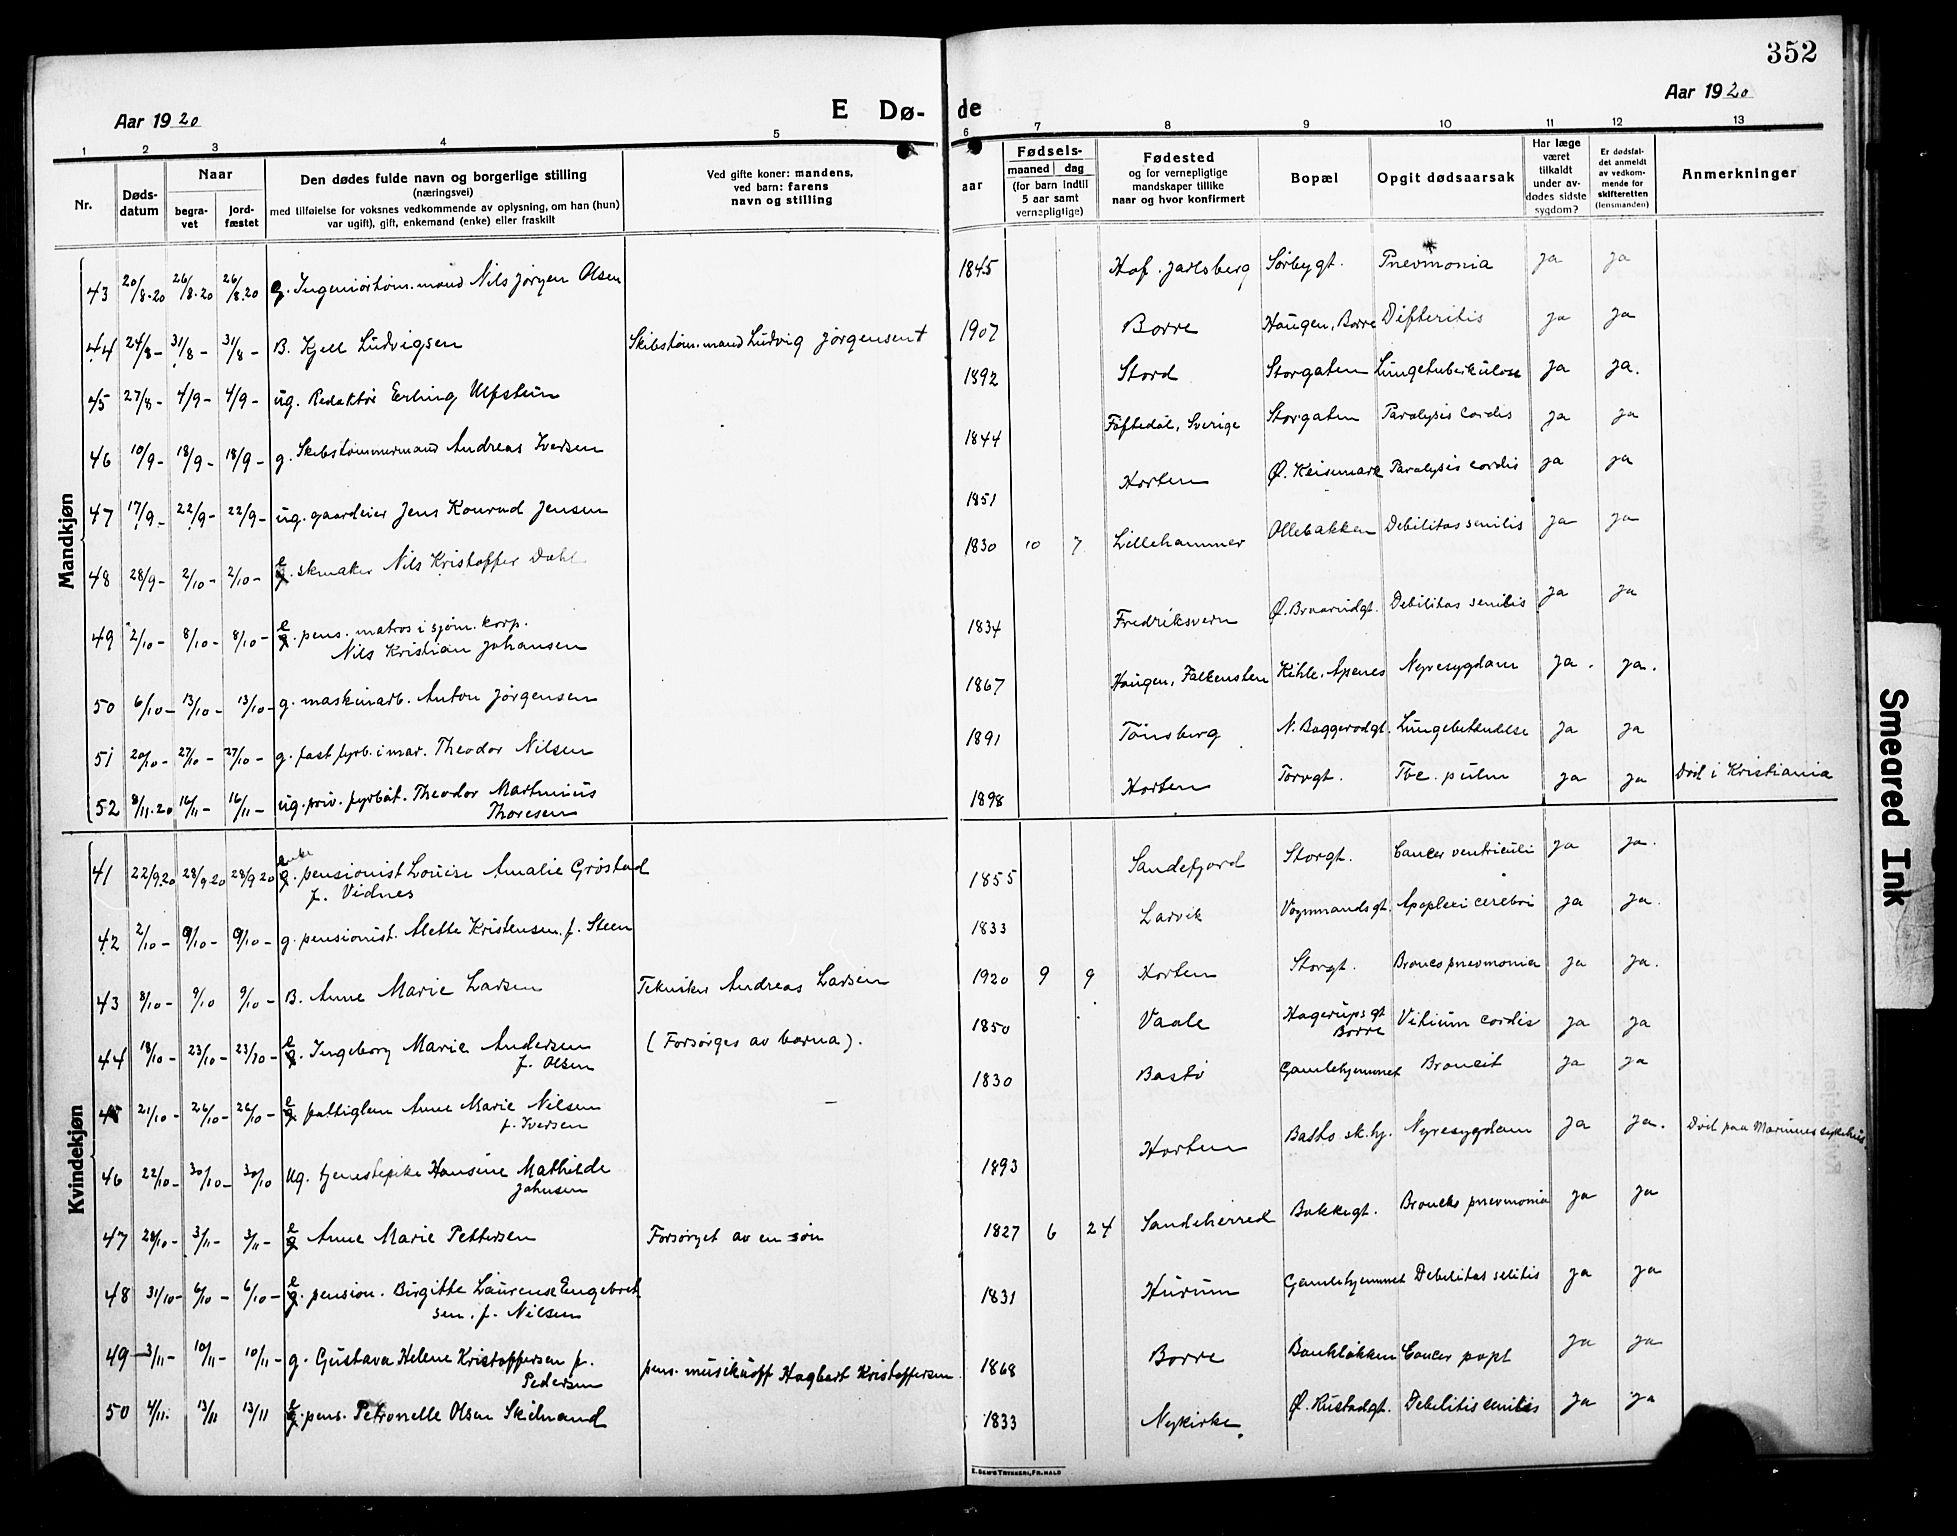 352
Aar 1920
E Dø-
de
Aar 1920
1 2 3 4 5 6 7 8 9 10 11 12 13
Nr.
Døds-
datum
Naar
begra-
vet
jord-
fæstet
Den dødes fulde navn og borgerlige stilling
(næringsvei)
med tilføielse for voksnes vedkommende av oplysning, om han (hun)
var ugift), gift, enkemand (enke) eller fraskilt
Ved gifte koner: mandens,
ved barn: farens
navn og stilling
aar
Fødsels-
maaned dag
(for barn indtil
5 aar samt
vernepligtige)
Fødested
og for vernepligtige
mandskaper tillike
naar og hvor konfirmert
Bopæl
Opgit dødsaarsak
Har læge
været
tilkaldt
under av-
dødes sidste
sygdom?
Er dødsfal-
det anmeldt
av vedkom-
mende for
skifteretten
(lensmanden)
Anmerkninger
Mandkjøn
43 20/8-20 26/8-20 26/8-20 g. Ingeniørtøm.mand Nils Jørgen Olsen 1845 Hof. Jarlsberg Sørbygt. Pnevmonia ja ja
44 24/8 - 31/8 - 31/8 - B. Kjell Ludvigsen Skibstøm.mand Ludvig Jørgensen † 1907 Borre Haugen, Borre Difteritis ja ja
45 27/8 - 4/9 - 4/9 - ug. Redaktør Erling Ulfstein 1892 Stord Storgaten Lungetuberkulose ja ja.
46 10/9 - 18/9 - 18/9 - g. Skibstømmermand Andreas Iversen 1844 Foftedal, Sverige Storgaten Paralysis cordis ja ja
47 17/9 - 22/9 - 22/9 - ug. gaardeier Jens Konrad Jensen 1851 Horten Ø. Keisemark Paralysis cordis ja ja
48 28/9 - 2/10 - 2/10 - e. skmaker Nils Kristoffer Dahl 1830 10 7 Lillehammer Ollebakken Debilitas senilis ja ja
49 2/10 - 8/10 - 8/10 - e. pens. matros i sjøm. korp.
Nils Kristian Johansen 1834 Fredriksvern Ø. Braarudgt. Debilitas senilis ja ja
50 6/10 - 13/10 - 13/10 - g. maskinarb. Anton Jørgensen 1867 Haugen, Falkensten Kihle, Apenes Nyresygdam ja. ja.
51 20/10 - 27/10 - 27/10 - g. fast fyrb. i mar. Theodor Nilsen 1891 Tønsberg N. Baggerødgt. Lungebetændelse ja ja
52 8/11-20 16/11 - 16/11 - ug. priv. fyrbøt. Theodor Martinius
Thoresen 1898 Horten Torvgt. Tbc. pulm ja ja Død i Kristiania
Kvindekjøn
41 22/9.20 28/9.20 28/9 20 enke g. pensionist Louise Amalie Grøstad
f. Vidnes 1855 Sandefjord Storgt. Cancer ventriculi ja ja.
42 2/10 - 9/10 - 9/10 - g. pensionist. Mette Kristensen f. Steen 1833 Larvik Vognmandsgt. Apoplexi cerebri ja ja.
43 8/10 - 9/10 9/10 - B. Anne Marie Larsen Tekniker Andreas Larsen 1920 9 9 Horten Storgt. Broncopnevmonia ja ja.
44 18/10 - 23/10 - 23/10 - e. Ingeborg Marie Andersen
f. Olsen (Forsørges av barna). 1850 Vaale Hagerupsgt
Borre Vitium cordis ja ja
45 21/10 - 26/10 - 26/10 - e fattiglem Anne Marie Nilsen
f. Iversen 1830 Bastø Gamlehjemmet Broncit ja ja
46 22/10 - 30/10 - 30/10 Ug. tjenestepike Hansine Mathilde
Johnsen 1893 Horten Bastø sk.hj. Nyresygdam ja ja. Død paa Marinens sykehus
47 28/10 - 3/11 - 3/11 - e Anne Marie Pettersen Forsørget av en søn 1827 6 24 Sandeherred Bakkegt. Broncho pnevmonia ja ja
48 31/10 - 6/10 - 6/10 - e. pension. Birgitte Laurense Engebret-
sen. f. Nilsen 1831 Hurum Gamlehjemmet Debilitas selitis ja ja
49 3/11 - 10/11 - 10/11 - g. Gustava Helene Kristoffersen f.
Pedersen pens. musikuoff Hagbart Kristoffersen 1868 Borre Bankløkken Cancer papt ja ja
50 4/11. 13/11 13/11 e. pens. Petronelle Olsen Skilmand 1833 Nykirke. Ø. Rustadgt. Debilitis senilis ja ja
Smeared Ink